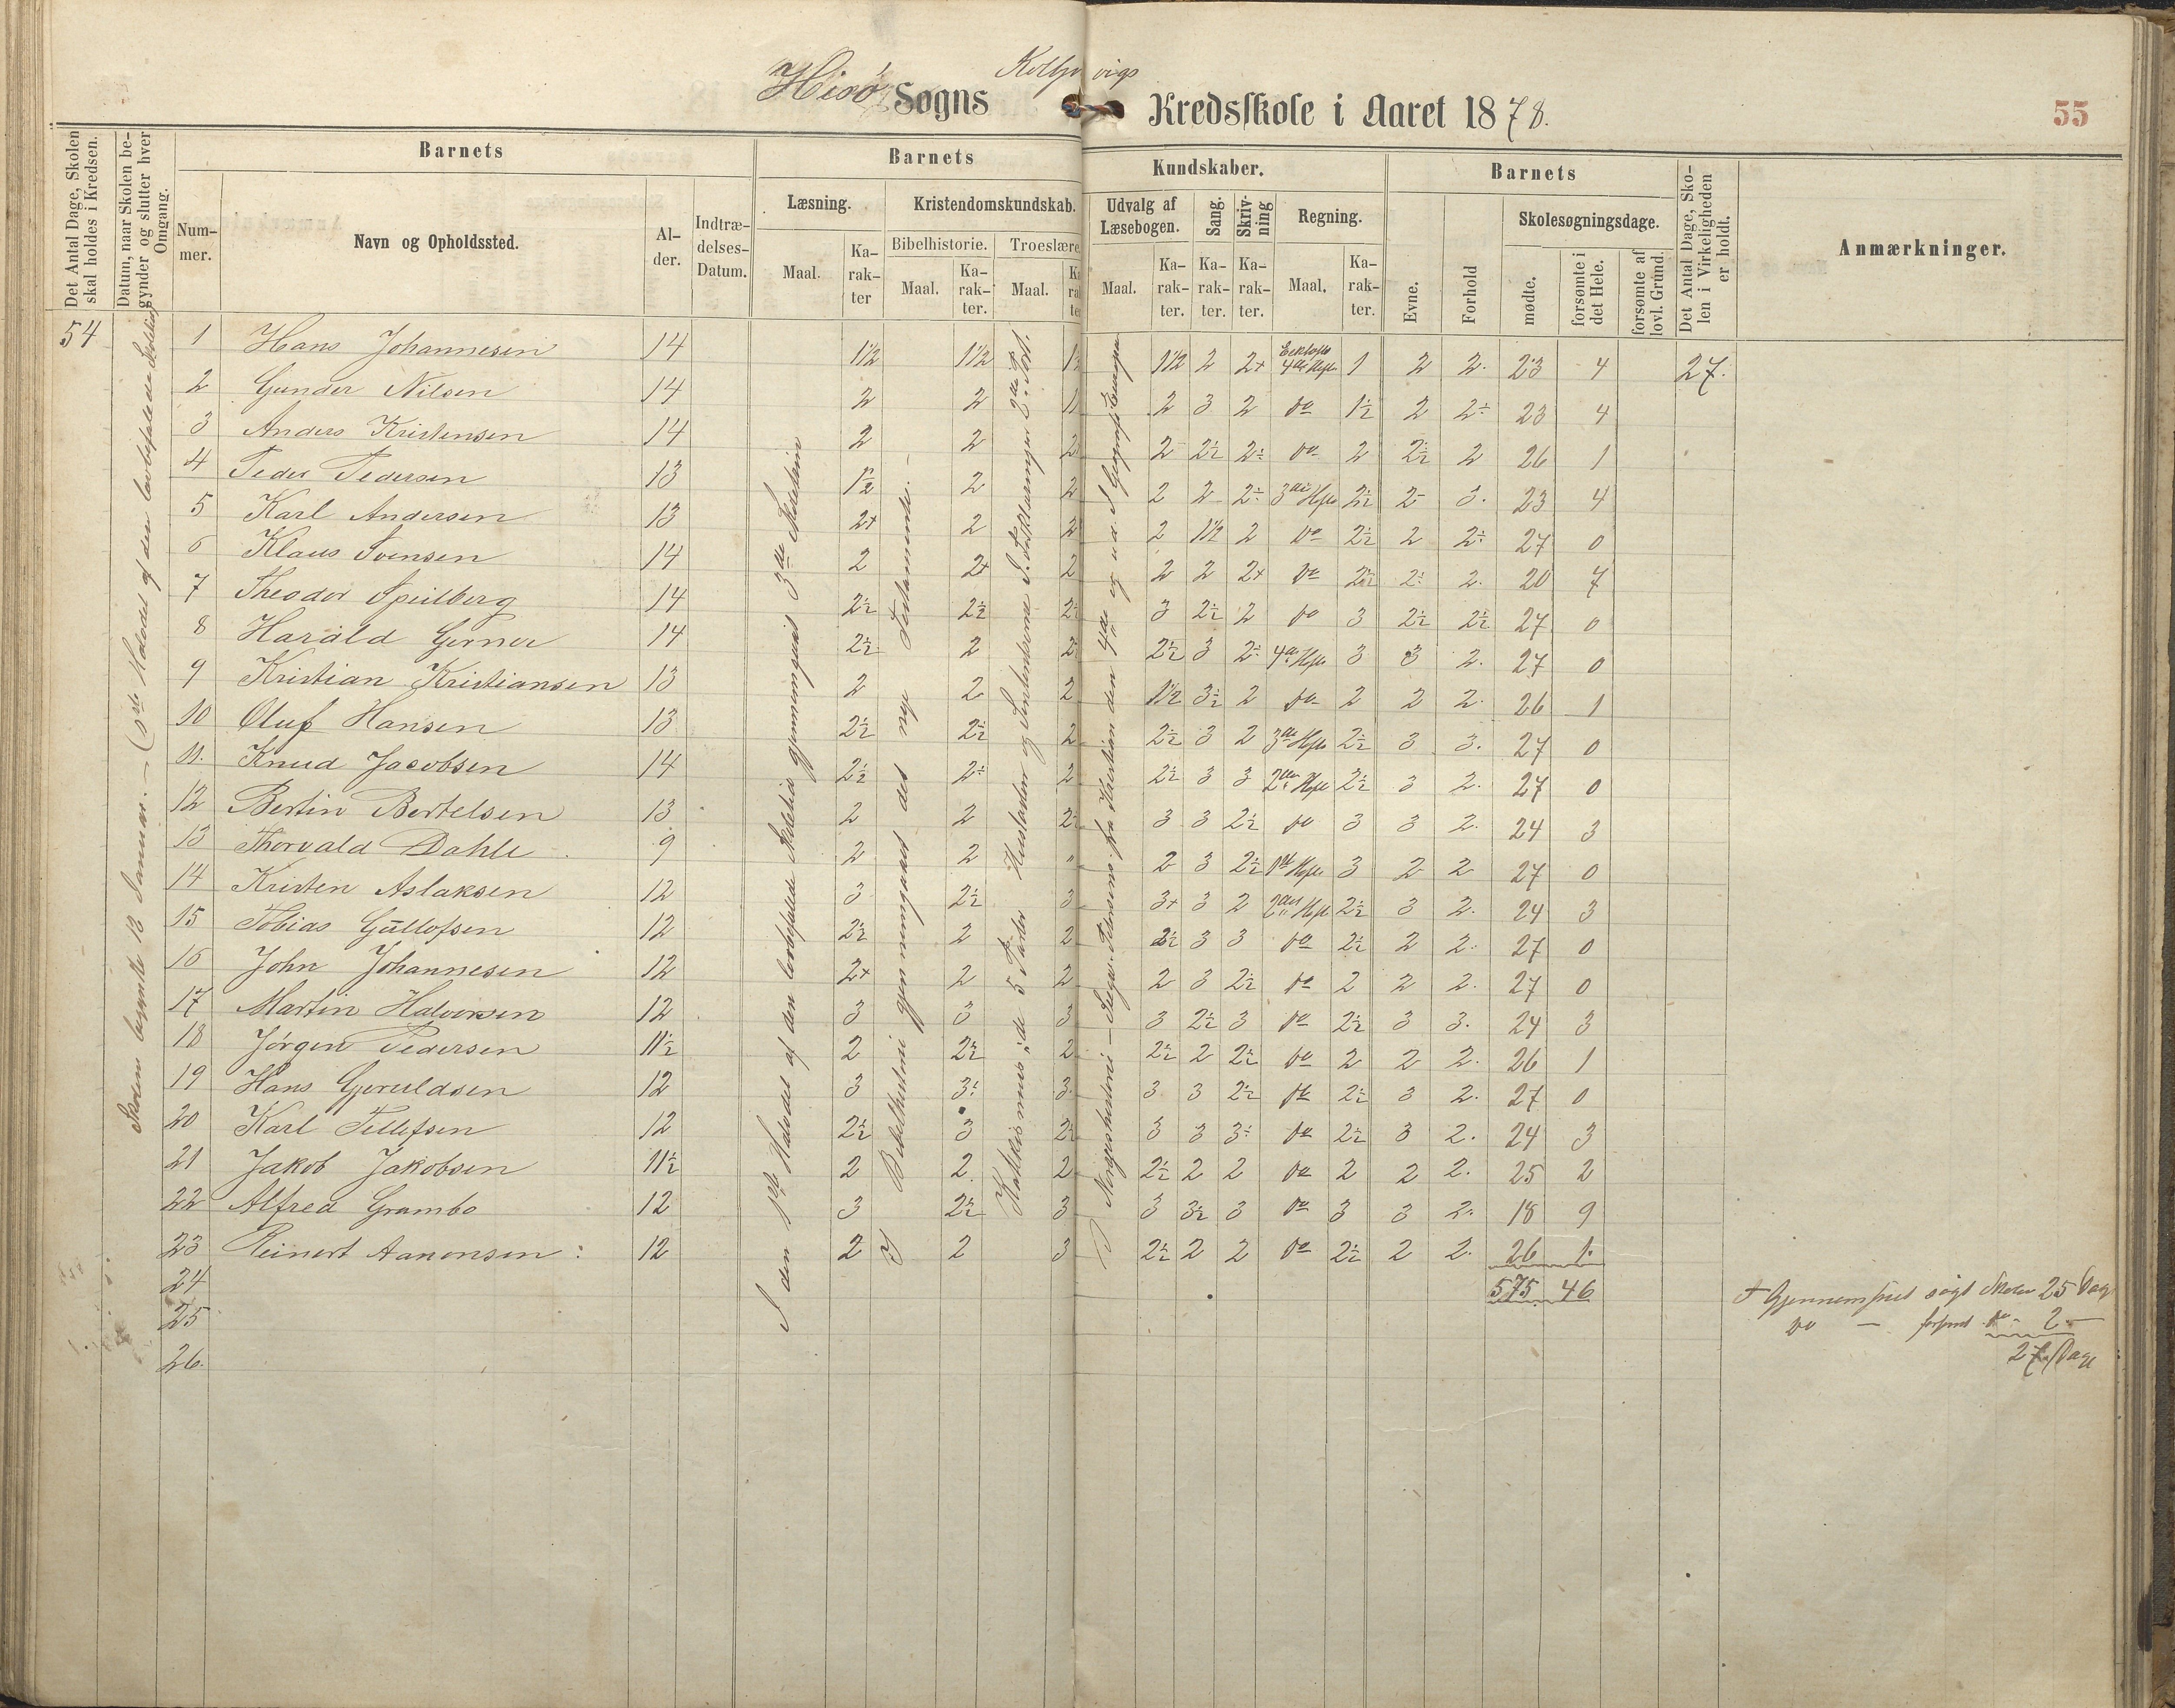 Hisø Sogns Kolbjørnsvigs Kredsskole i Aaret 1878.
55
Det Antal Dage, Skolen skal holdes i Kredsen.
Datum, naar Skolen begynder og slutter hver Omgang.
Barnets
Nummer.
Navn og Opholdssted.
Alder.
Indtrædelses-Datum.
Barnets
Kundskaber.
Læsning.
Maal.
Karakter
Kristendomskundskab.
Bibelhistorie.
Maal.
Karakter.
Troeslære
Maal.
Udvalg af Læsebogen.
Maal.
Karakter.
Sang.
Karakter.
Skrivning
Karakter.
Regning.
Maal.
Karakter.
Barnets
Evne.
Forhold
Skolesøgningsdage.
mødte.
forsømte i det Hele.
forsømte af lovl. Grund.
Det Antal Dage, Skolen i Virkeligheden er holdt.
Anmærkninger.
54
Skolen begynte 13 Januar. – (1ste Halvdel af den lovbefalede Skoletid)
I den 1ste Halvdel af den lovbefalede Skoletid gjennemgaaet 3die
I Bibelhistorie gjennemgaaet det nye Testamente. –
1 Hans Johannesen 14 1½ 1½ 1½ 2 2+ 4de Hefte 1 2 2. 23 4 27.
2 Gunder Nilsen 14 2 2 2 3 2 do 1½ 2 2÷ 23 4
3 Anders Kristensen 14 2 2 2 2½ 2÷ do 2 2½ 2 26 1
4 Peder Pedersen 13 1½ 2 2 2 2 2÷ 3die Hefte 2½ 2 3. 23 4
5 Karl Andersen 13 2+ 2 2 2 1½ 2 do 2½ 2 2÷ 27 0
6 Klaus Svensen 14 2 2+ 2 2 2 2+ do 2½ 2÷ 2. 20 7
7 Theodor Speilberg 14 2½ 2½ 3 2½ 2 do 3 2½ 2½ 27 0
8 Harald Gerner 14 2½ 2 2½ 3 2÷ 4de Hefte 3 3 2. 27 0
9 Kristian Kristiansen 13 2 2 2 1½ 3½ 2 do 2 2 2. 26 1
10 Oluf Hansen 13 2½ 2½ 2 2½ 3 2 3die Hefte 2½ 3 3. 27 0
11. Knud Jacobsen 14 2½ 2÷ 2 2½ 3 3 2den Hefte 2½ 3 2. 27 0
12 Bertin Bertelsen 13 2 2 3 3 2½ do 3 3 2. 24 3
13 Thorvald Dahle 9 2 2 " 2 3 2½ 1ste Hefte 3 2 2 27 0
14 Kristen Aslaksen 12 3 2½ 3 3+ 3 2 2det Hefte 2½ 3 2. 24 3
15 Tobias Gullofsen 12 2½ 2 2 2½ 3 3 do 2½ 2 2. 27 0
16 John Johannesen 12 2+ 2 2 2 3 2½ do 2 2 2. 27 0
17 Martin Halvorsen 12 3 3 3 3 2½ 3 do 2½ 3 3. 24 3
18 Jørgen Pedersen 11½ 2 2½ 2 2½ 2 2½ do 2 2 2. 26 1
19 Hans Gjeruldsen 12 3 3÷ 3 3 3 2½ do 2½ 3 2. 27 0
20 Karl Tellefsen 12 2½ 3 3 3 3÷ do 2½ 3 2. 24 3
21 Jakob Jakobsen 11½ 2 2 2 2½ 2 2 do 2 2 2. 25 2
22 Alfred Grambo 12 3 2½ 3 3 3½ 3 do 3 3 2. 18 9
23 Reinert Aanonsen 12 2 2 3 2½ 2 2 do 2½ 2 2. 26 1.
24 575 46
25
26.
I Gjennemsnit søgt Skolen 25 Dage
do – forsømt do 2 –
27 Dage